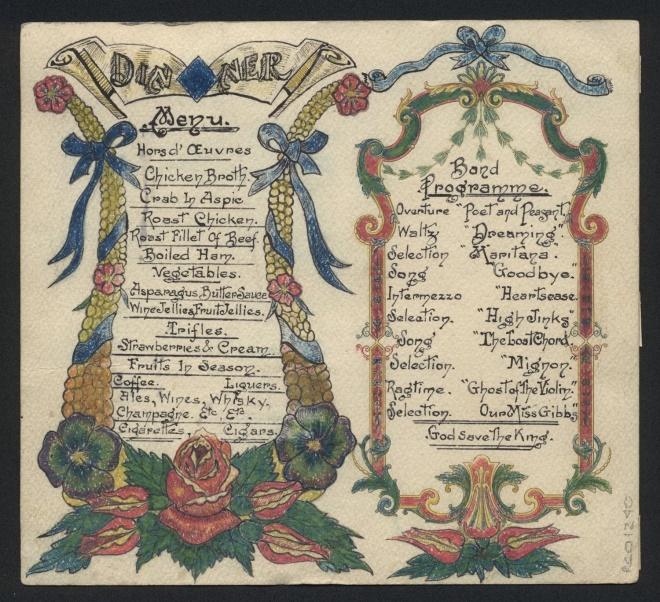 DINNER
Menu.
Hors d' Œuvres
Chicken Broth.
Crab In Aspic
Roast Chicken.
Roast Fillet Of Beef.
Boiled Ham.
Vegetables.
Asparagus, Butter Sauce
Wine Jellies, Fruit Jellies.
Trifles.
Strawberries & Cream.
Fruits In Season.
Coffee. Liquers.
Ales, Wines, Whisky,
Champagne. Etc., Etc.
Cigarettes. Cigars.
Band
Programme.
Overture "Poet and Peasant."
Waltz "Dreaming".
Selection "Maritana.
Song "Goodbye."
Intermezzo "Heartsease.
Selection. "High Jinks"
Song "The Lost Chord
Selection. "Mignon."
Ragtime. "Ghost of The Violin"
Selection. Our Miss Gibbs"
God Save The King.